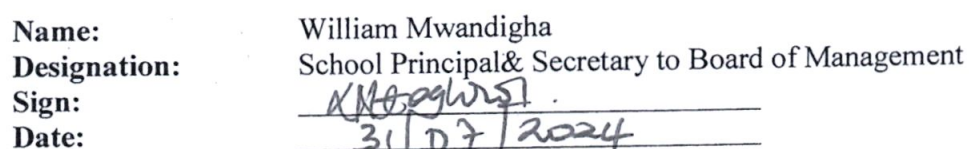 Name: William Mwandigha
Designation: School Principal& Secretary to Board of Management
Sign:
Date: 31/07/2024